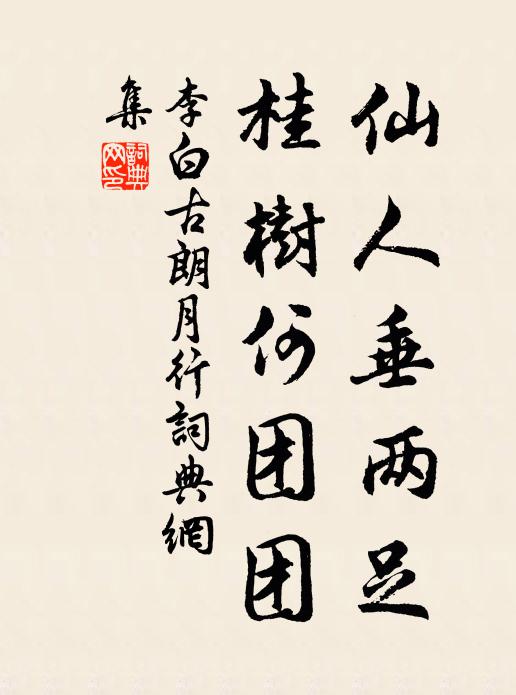 仙人垂两足
桂樹何团团
李白古朗月行詞典網
集
詞典网印